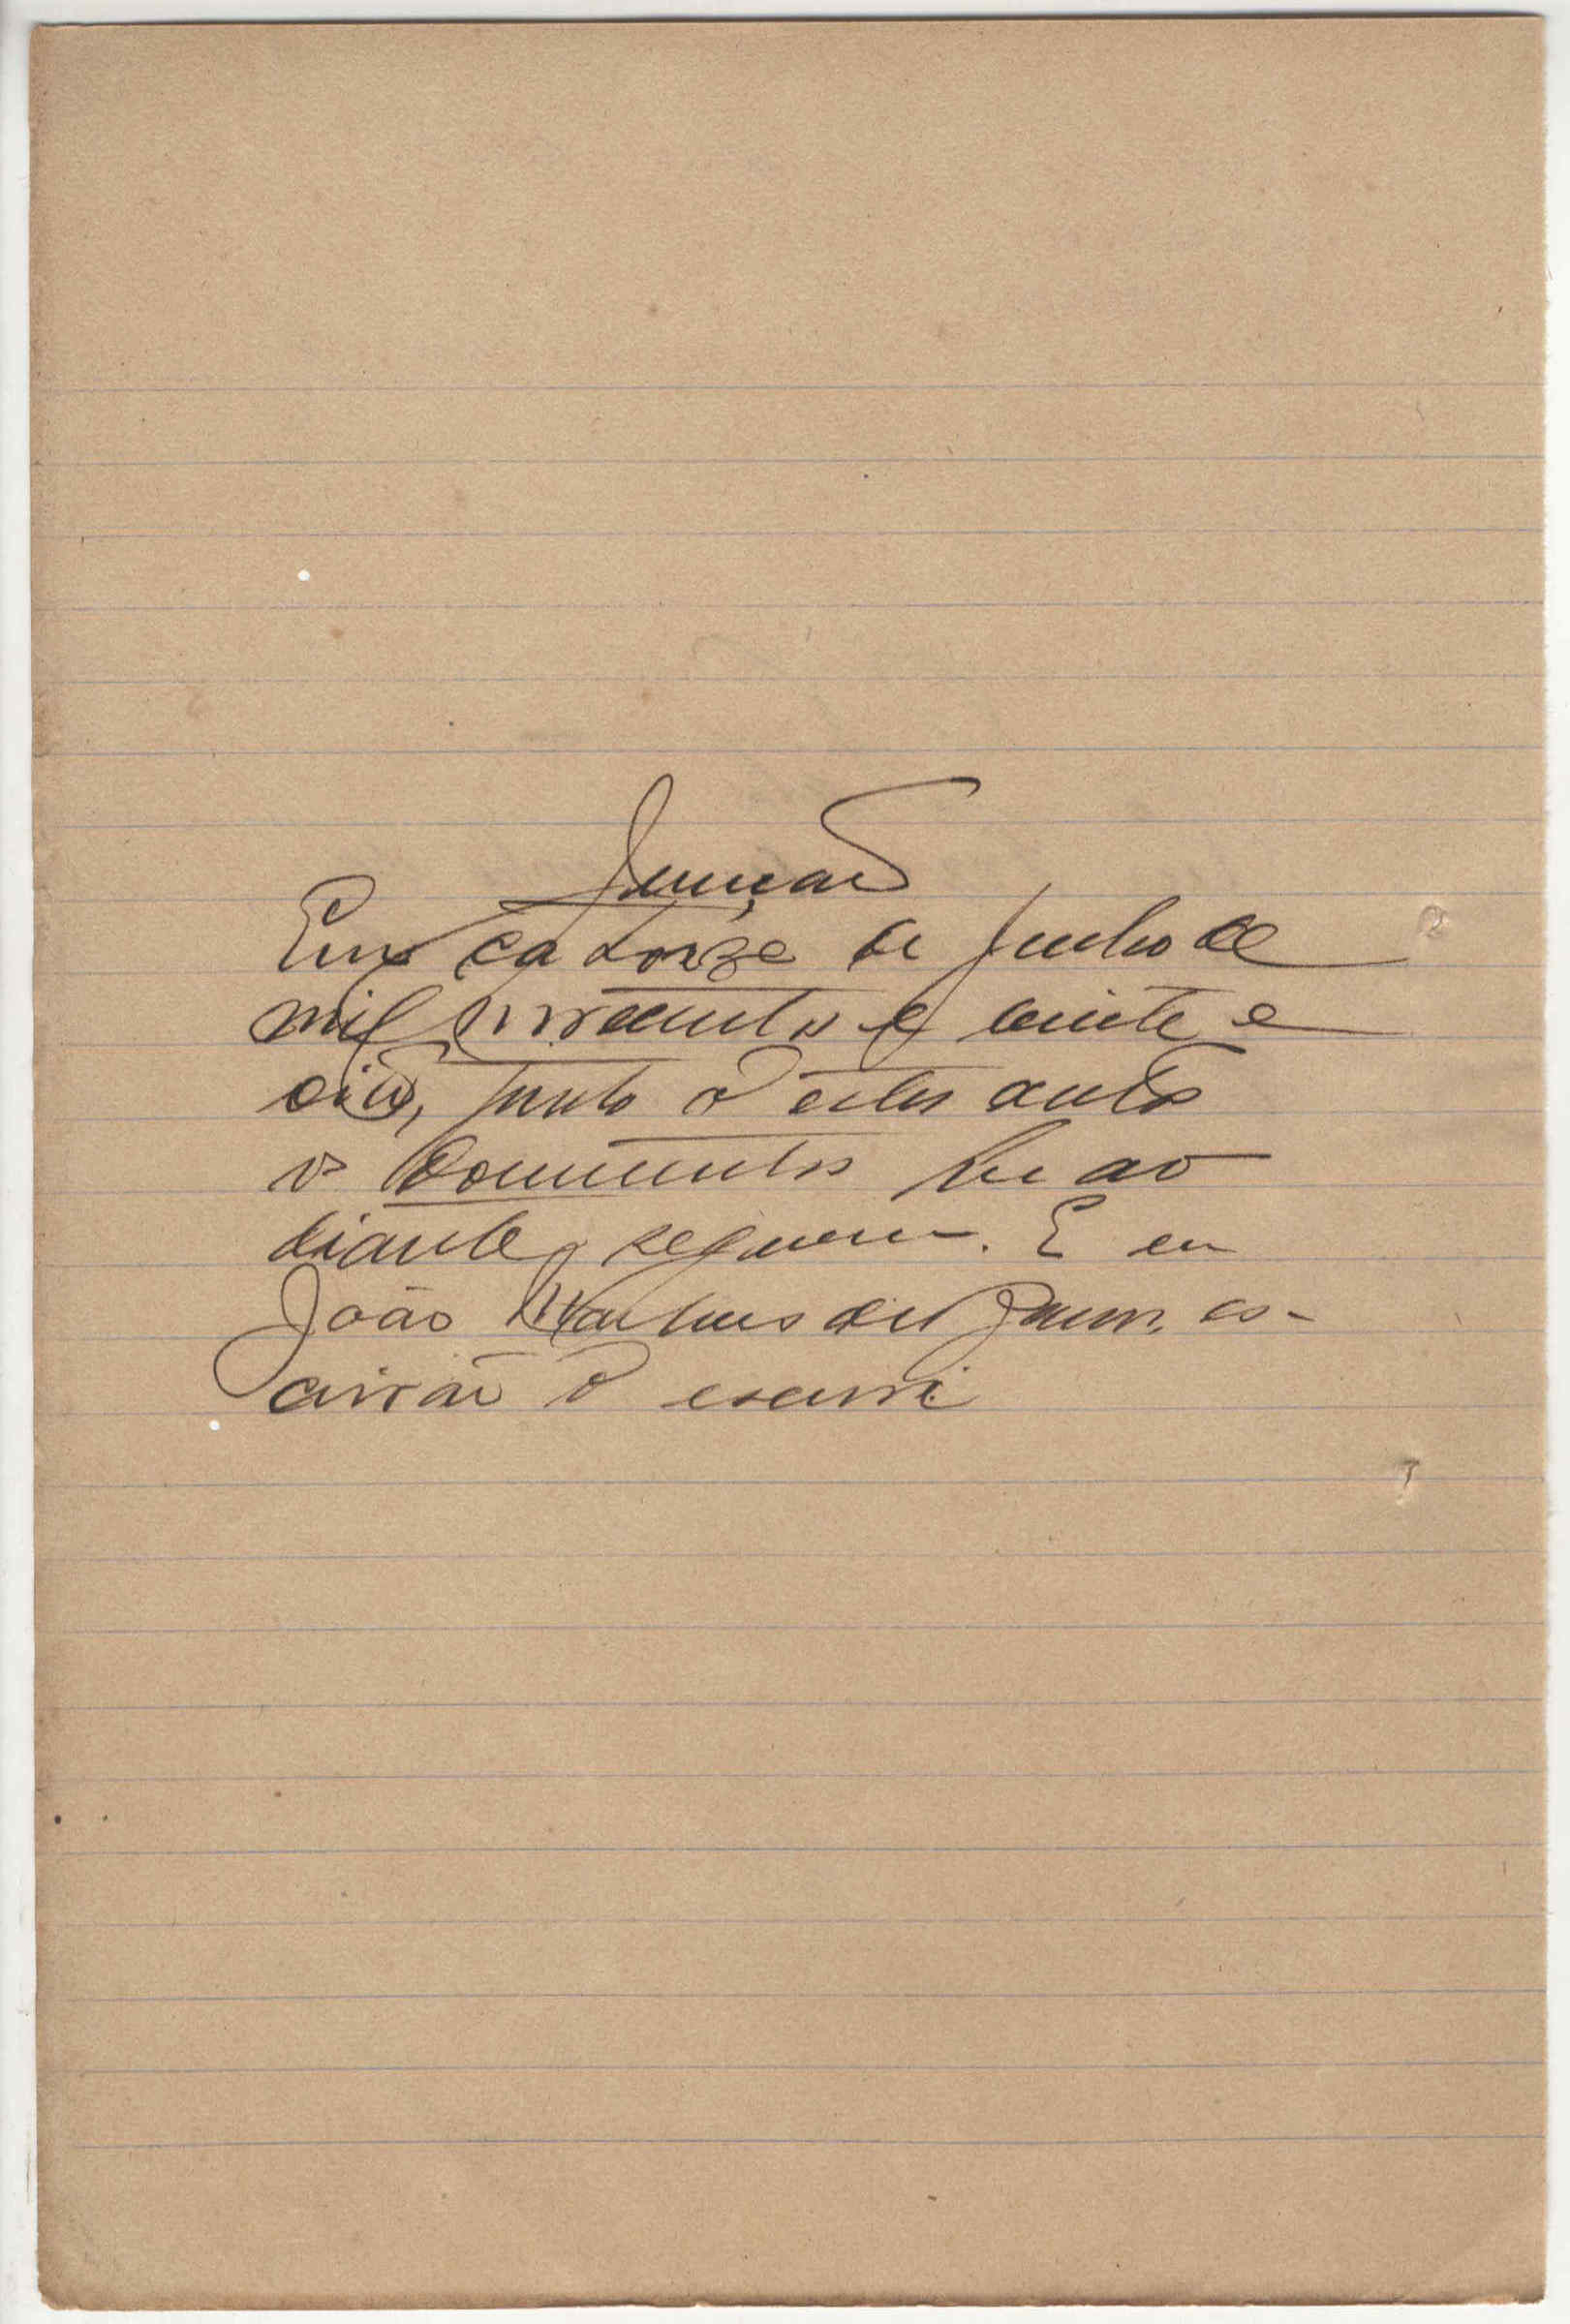 Junção
Em catorze de Junho de
mil novecentos e vinte e
oito, junto a estes autos
os documentos que ao
diante seguem. E eu
João es-
crivão o escrevi